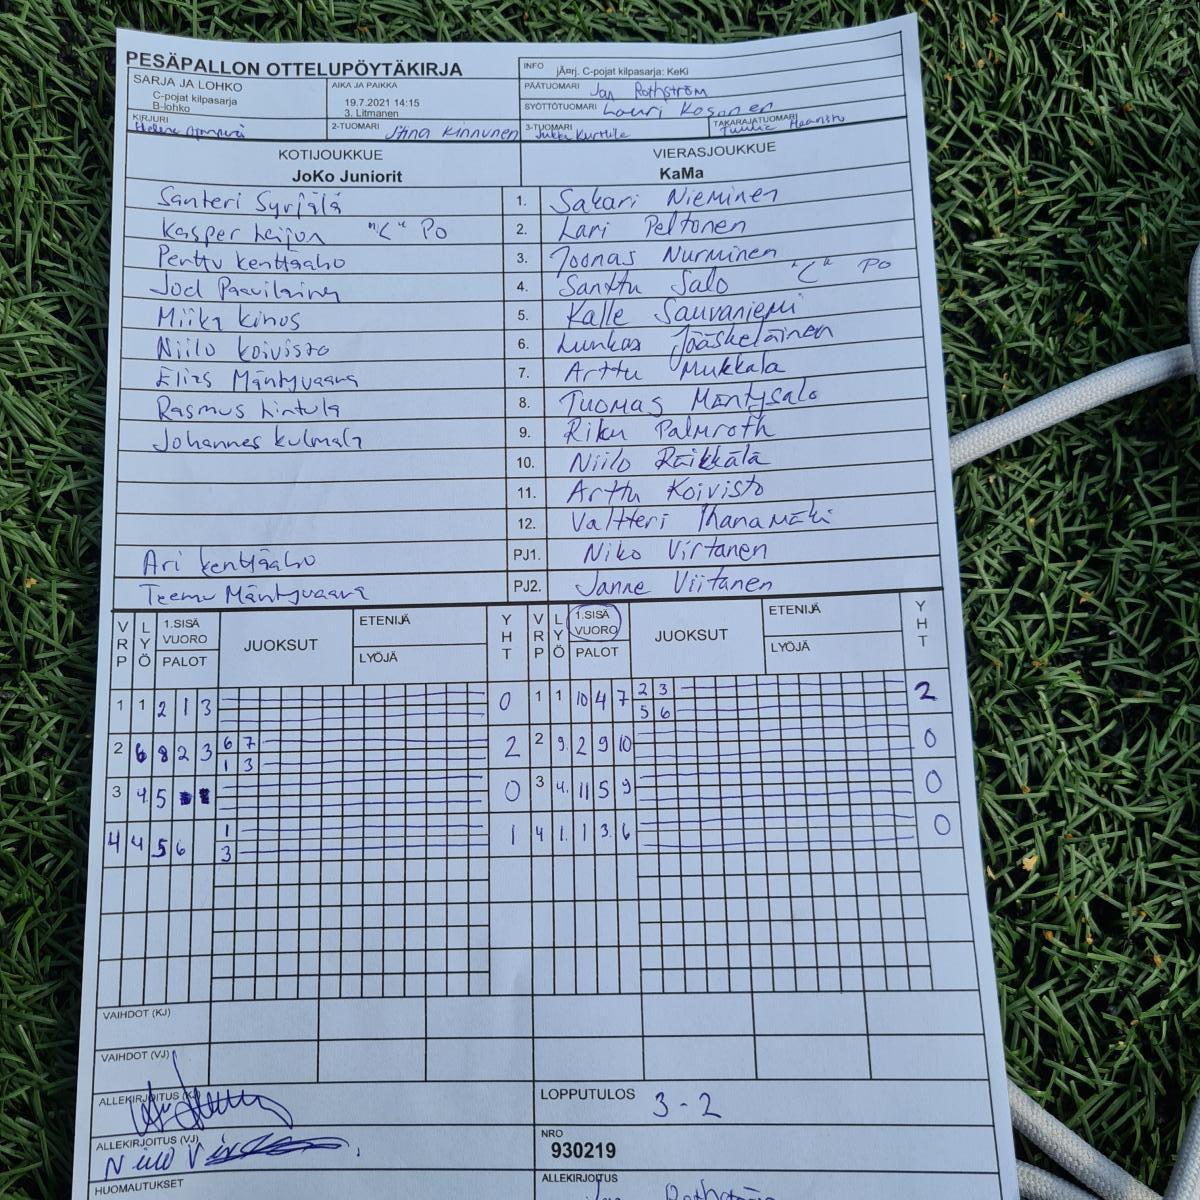 PESÄPALLON OTTELUPÖYTÄKIRJA
SARJA JA LOHKO
C-pojat kilpasarja
B-lohko
AIKA JA PAIKKA
19.7.2021 14:15
3. Litmanen
INFO jÄ¤rj. C-pojat kilpasarja: KeKi
PÄÄTUOMARI Jan Rothström
SYÖTTÖTUOMARI Lauri Kosonen
KIRJURI
2-TUOMARI Kinnunen
3-TUOMARI Jukka Kurttila
TAKARAJATUOMARI
KOTIJOUKKUE
JoKo Juniorit
VIERASJOUKKUE
KaMa
Santeri Syrjälä 1. Sakari Nieminen
Kasper "C" Po 2. Lari Peltonen
Perttu Kenttäaho 3. Joonas Nurminen
Joel Paavilainen 4. Santtu Salo "C" Po
Miika Kinos 5. Kalle Sauvaniemi
Niilo Koivisto 6. Jääskeläinen
Elias Mäntyvaara 7. Arttu Mukkala
Rasmus Hintula 8. Tuomas Mäntysalo
Johannes Kulmala 9. Riku Palmroth
10. Niilo Räikkälä
11. Arttu Koivisto
12. Valtteri Ihanamäki
Ari Kenttäaho PJ1. Niko Virtanen
Teemu Mäntyvaara PJ2. Janne Viitanen
VRP LYÖ 1.SISÄ VUORO PALOT JUOKSUT ETENIJÄ LYÖJÄ YHT VRP LYÖ 1.SISÄ VUORO PALOT JUOKSUT ETENIJÄ LYÖJÄ YHT
1 1 2 1 3 0 1 1 10 4 7 2 3 2
5 6
2 6 8 2 3 6 7 2 2 9. 2 9 10 0
1 3
3 4. 5 0 3 4. 11 5 9 0
4 4 5 6 1 1 4 1. 1 3. 6 0
3
VAIHDOT (KJ)
VAIHDOT (VJ)
ALLEKIRJOITUS (KJ)
LOPPUTULOS 3 - 2
ALLEKIRJOITUS (VJ)
NRO
930219
HUOMAUTUKSET
ALLEKIRJOITUS
Jan Rothström